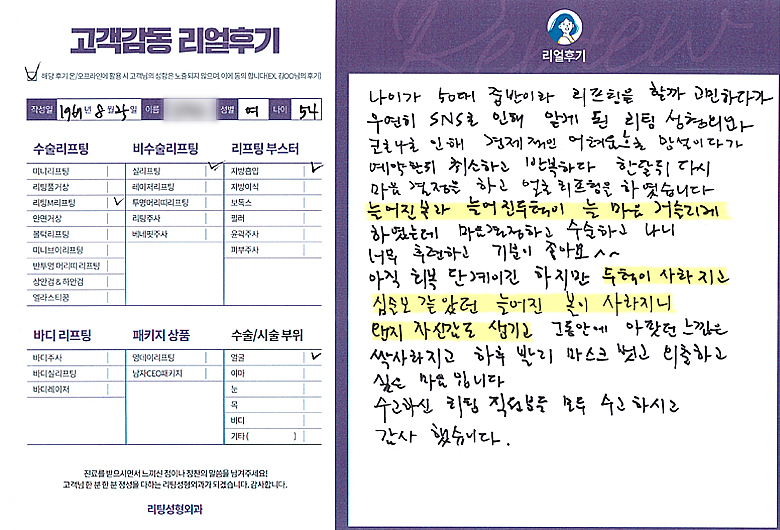 고객감동 리얼후기
해당 후기 온/오프라인에 활용 시 고객님의 성함은 노출되지 않으며, 이에 동의 합니다(EX. 김OO님의 후기)
작성일 1961년 8월 25일 이름 성별 여 나이 54
수술리프팅
미니리프팅
리팅풀거상
리팅M리프팅
안면거상
볼턱리프팅
미니브이리프팅
반투명 머리띠 리프팅
상안검 & 하안검
엘라스티꿈
비수술리프팅
실리프팅
레이저리프팅
투명머리띠리프팅
리팅주사
베네핏주사
리프팅 부스터
지방흡입
지방이식
보톡스
필러
윤곽주사
피부주사
바디 리프팅
바디주사
바디실리프팅
바디레이저
패키지 상품
영데이리프팅
남자CEO패키지
수술/시술 부위
얼굴
이마
눈
목
바디
기타 ( )
진료를 받으시면서 느끼신 점이나 칭찬의 말씀을 남겨주세요!
고객님 한 분 한 분 정성을 다하는 리팅성형외과가 되겠습니다. 감사합니다.
리팅성형외과
Review
리얼후기
나이가 50대 중반이라 리프팅을 할까 고민하다가
우연히 SNS로 인해 알게 된 리팅 성형외과
코로나로 인해 경제적인 어려움으로 망설이다가
예약한뒤 취소하고 반복하다 한달뒤 다시
마음 결정을 하고 얼굴리프팅을 하였습니다
늘어진볼라 늘어진두턱이 늘 마음 거슬리게
하였는데 마음결정하고 수술하고 나니
너무 후련하고 기분이 좋아요 ^^
아직 회복 단계이긴 하지만 두턱이 사라지고
심술보 같았던 늘어진 볼이 사라지니
왠지 자신감도 생기고 그동안에 아팠던 느낌은
싹사라지고 하루 빨리 마스크 벗고 외출하고
싶은 마음 입니다
수고하신 리팅 직원분들 모두 수고 하시고
감사 했습니다.